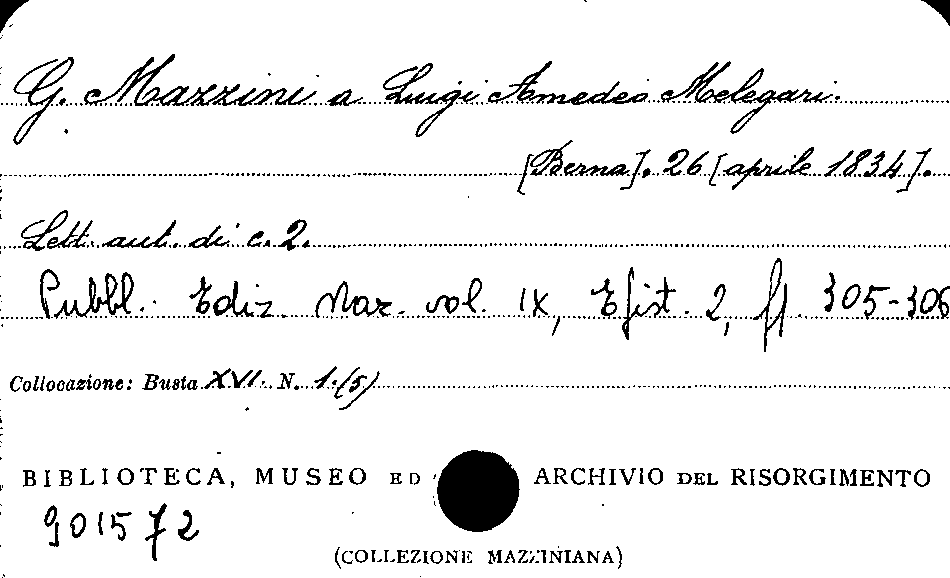 G. Mazzini a Luigi Amedeo Melegari.
[Berna]. 26 [aprile 1834].
Lett. aut. di c. 2.
Pubbl. Ediz. Naz. vol. IX, Epist. 2, pp. 305-306
Collocazione: Busta XVI. N. 1.(5)
BIBLIOTECA, MUSEO ED ARCHIVIO DEL RISORGIMENTO
901572
(COLLEZIONE MAZZINIANA)